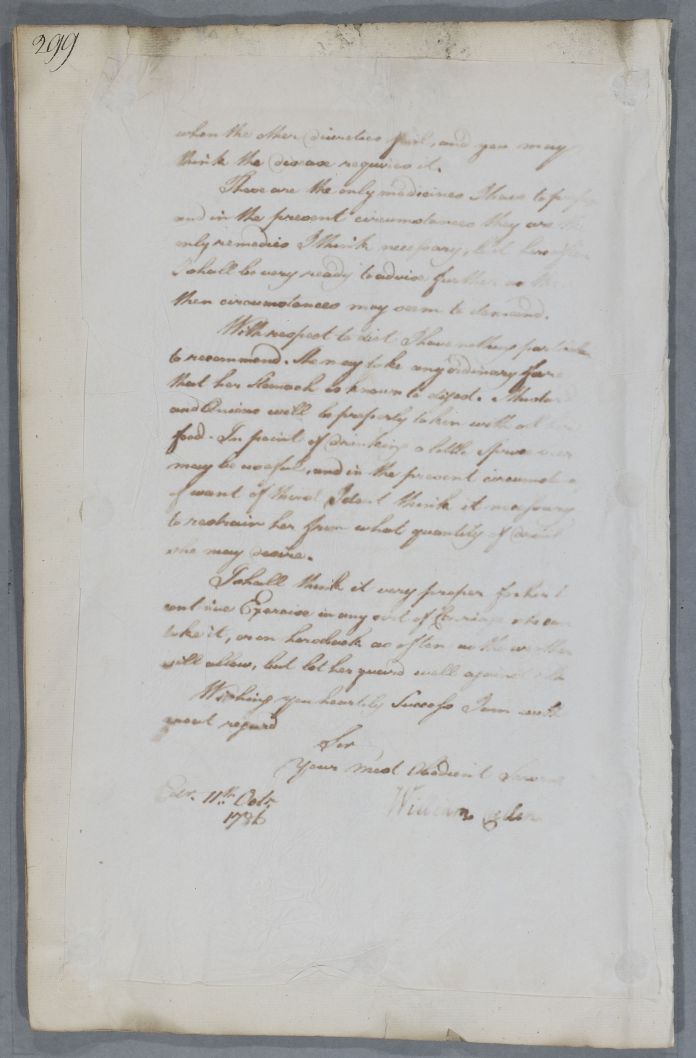 299
when the other diuretics fail, and you may
think the disease requires it.
These are the only medicines I have to
and in the present circumstances they are the
only remedies I think necessary, but
I shall be very ready to advise further as
then circumstances may seem to demand.
With respect to diet I have nothing particular
to recommend. She may take any ordinary fare
that her Stomach is known to digest. Mustard
and Onions will be properly taken with
food. In point of drinking a little Spruce beer
may be useful, and in the present circumstance
of want of thirst I dont think it necessary
to restrain her from what quantity of drink
she may desire.
I shall think it very proper for her to
continue Exercise in any sort of Carriage she can
take it, or on horseback as often as the weather
will allow, but let her guard well against
Wishing you heartily Success I am with
great regard
Sir
Your most Obedient Servant
Edr. 11th Octr.
1786
William